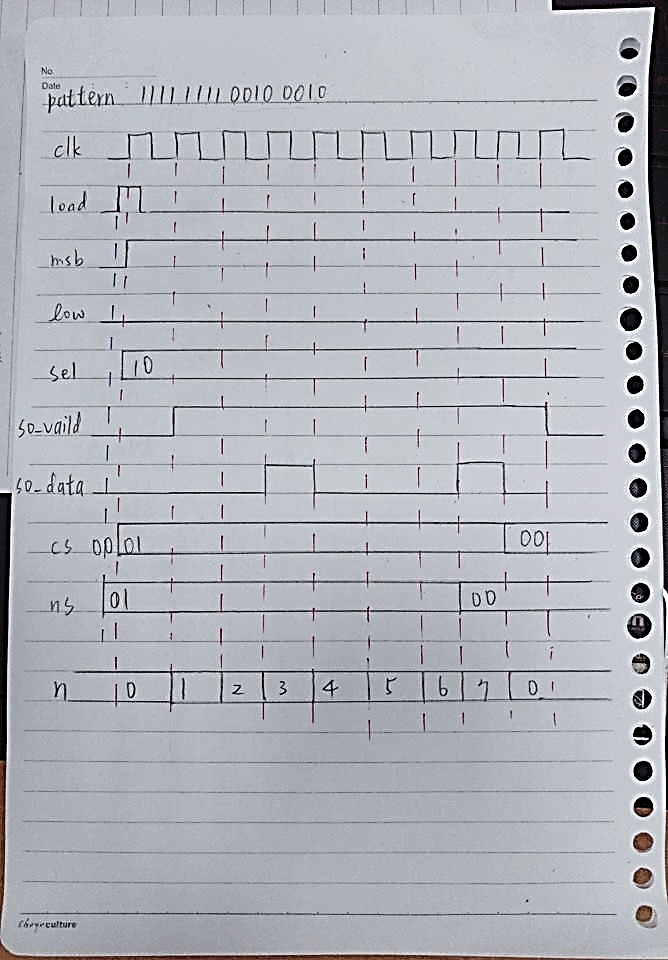 No.
Date
pattern : 11111111 0010 0010
clk
load
msb
low
sel 10
so_vaild
so_data
cs 00 01 00
ns 01 00
n 0 1 2 3 4 5 6 7 0
culture